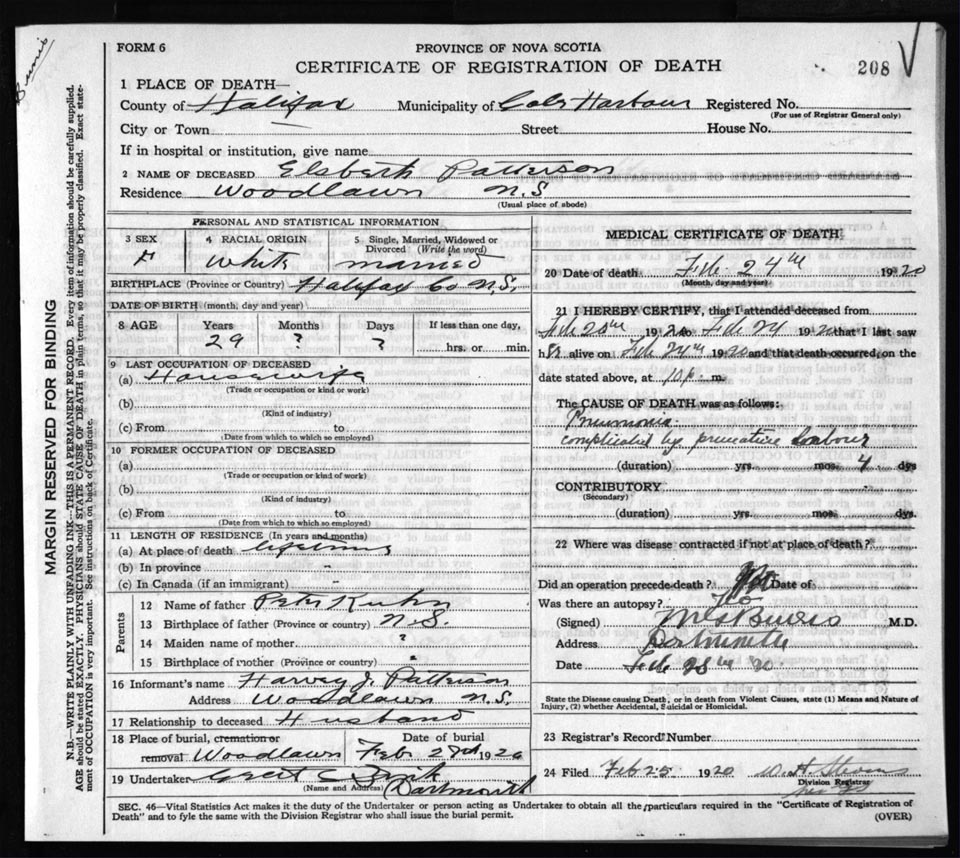 Burris
FORM 6
PROVINCE OF NOVA SCOTIA
CERTIFICATE OF REGISTRATION OF DEATH
208
1 PLACE OF DEATH—
County of Halifax Municipality of Cole Harbour Registered No.
(For use of Registrar General only)
City or Town Street House No.
If in hospital or institution, give name
2 NAME OF DECEASED Elsbeth Patterson
Residence Woodlawn N.S
(Usual place of abode)
PERSONAL AND STATISTICAL INFORMATION
3 SEX 4 RACIAL ORIGIN 5 Single, Married, Widowed or Divorced (Write the word)
F White Married
BIRTHPLACE (Province or Country) Halifax Co N.S.
DATE OF BIRTH (month, day and year)
8 AGE Years Months Days If less than one day,
29 ? ? hrs. or min.
9 LAST OCCUPATION OF DECEASED
(a) Housewife
(Trade or occupation or kind of work)
(b)
(Kind of industry)
(c) From to
(Date from which to which so employed)
10 FORMER OCCUPATION OF DECEASED
(a)
(Trade or occupation or kind of work)
(b)
(Kind of industry)
(c) From to
(Date from which to which so employed)
11 LENGTH OF RESIDENCE (In years and months)
(a) At place of death lifetime
(b) In province "
(c) In Canada (if an immigrant) -
Parents
12 Name of father Peter Kuhn
13 Birthplace of father (Province or country) N.S.
14 Maiden name of mother ?
15 Birthplace of mother (Province or country) "
16 Informant's name Harvey J. Patterson
Address Woodlawn N.S.
17 Relationship to deceased Husband
18 Place of burial, cremation or removal Woodlawn Date of burial Feb 1920
19 Undertaker
(Name and Address) Dartmouth
MEDICAL CERTIFICATE OF DEATH
20 Date of death Feb. 24th 1920
(Month, day and year)
21 I HEREBY CERTIFY, that I attended deceased from
Feb 20th 1920 to Feb 24 1920 that I last saw
her alive on Feb 24th 1920 and that death occurred, on the
date stated above, at 10 p. m.
The CAUSE OF DEATH was as follows:
Pneumonia
complicated by premature Labour
(duration) yrs. mos. 4 dys
CONTRIBUTORY
(Secondary)
(duration) yrs. mos. dys.
22 Where was disease contracted if not at place of death?
Did an operation precede death? No Date of
Was there an autopsy? No
(Signed) Burris M.D.
Address Dartmouth
Date Feb 25th 20
State the Disease causing Death, or in death from Violent Causes, state (1) Means and Nature of Injury, (2) whether Accidental, Suicidal or Homicidal.
23 Registrar's Record Number
24 Filed Feb 25 1920 W. H. Stevens
Division Registrar
SEC. 46—Vital Statistics Act makes it the duty of the Undertaker or person acting as Undertaker to obtain all the particulars required in the "Certificate of Registration of
Death" and to fyle the same with the Division Registrar who shall issue the burial permit. (OVER)
MARGIN RESERVED FOR BINDING
N.B.—WRITE PLAINLY WITH UNFADING INK—THIS IS A PERMANENT RECORD. Every item of information should be carefully supplied.
AGE should be stated EXACTLY. PHYSICIANS should STATE CAUSE OF DEATH in plain terms, so that it may be properly classified. Exact state-
ment of OCCUPATION is very important. See instructions on back of Certificate.